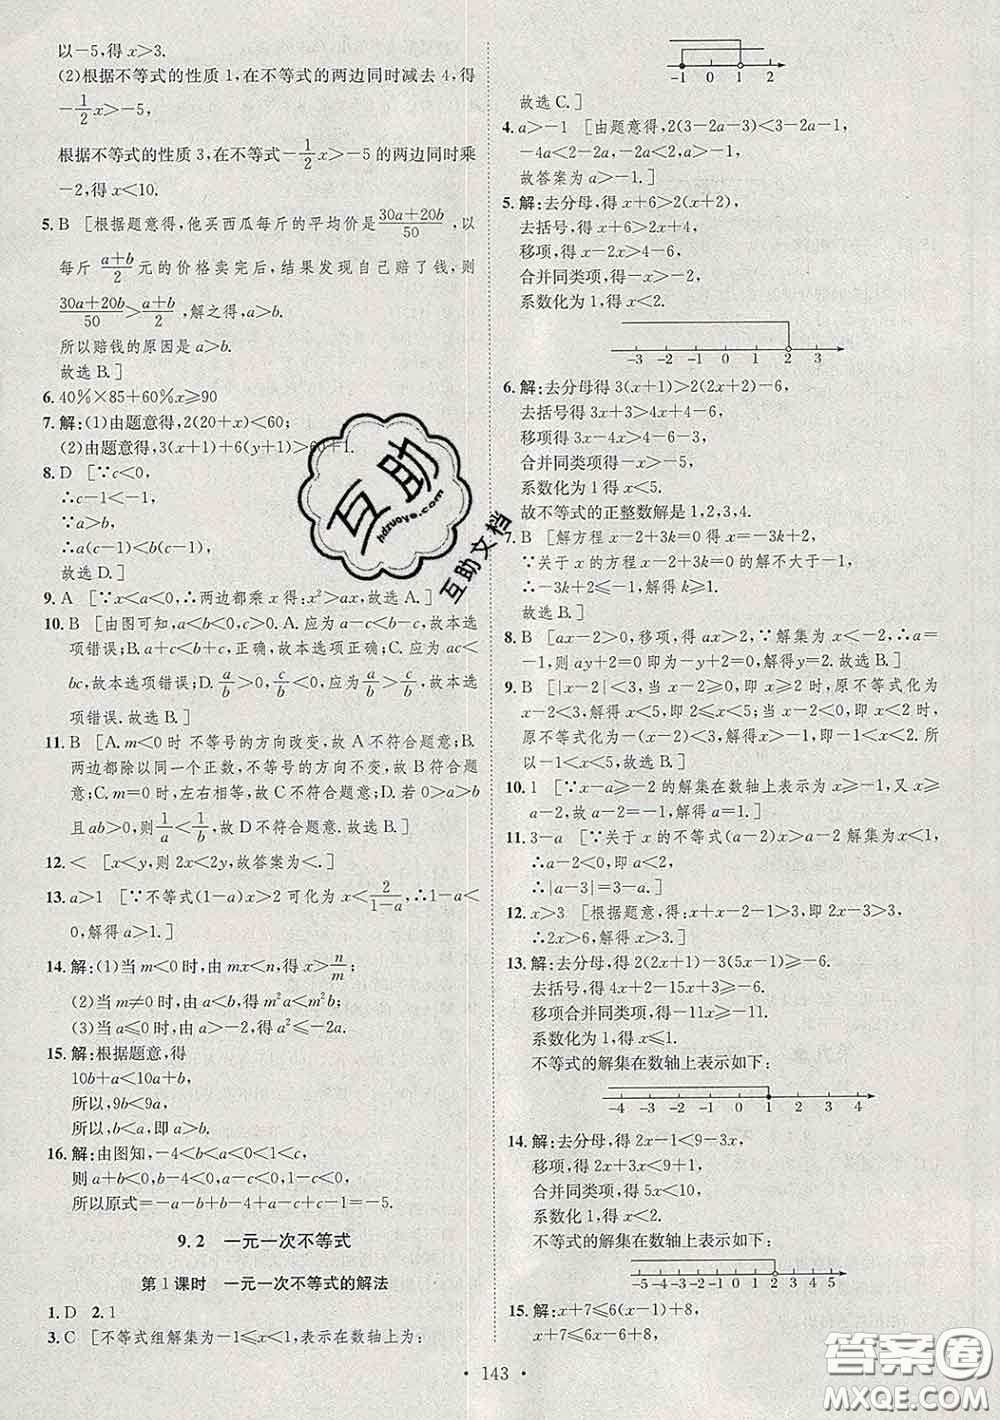 以－5,得 x＞3.
(2)根据不等式的性质 1,在不等式的两边同时减去 4,得
－1/2 x＞－5,
根据不等式的性质 3,在不等式－1/2 x＞－5 的两边同时乘
－2,得 x＜10.
5. B [根据题意得,他买西瓜每斤的平均价是 (30a＋20b)/50 ,以
每斤 (a＋b)/2 元的价格卖完后,结果发现自己赔了钱,则
(30a＋20b)/50＞(a＋b)/2 ,解之得,a＞b.
所以赔钱的原因是 a＞b.
故选 B.]
6. 40%×85＋60%x≥90
7. 解:(1)由题意得,2(20＋x)＜60;
(2)由题意得,3(x＋1)＋6(y＋1)＞60＋1.
8. D [∵c＜0,
∴c－1＜－1,
∵a＞b,
∴a(c－1)＜b(c－1),
故选 D.]
9. A [∵x＜a＜0,∴两边都乘 x 得:x²＞ax,故选 A.]
10. B [由图可知,a＜b＜0,c＞0. A.应为 a－c＜b－c,故本选
项错误;B. a＋c＜b＋c,正确,故本选项正确;C.应为 ac＜
bc,故本选项错误;D. a/b＞0, c/b＜0,应为 a/b＞c/b,故本选
项错误.故选 B.]
11. B [A. m＜0 时 不等号的方向改变,故 A 不符合题意;B.
两边都除以同一个正数,不等号的方向不变,故 B 符合题
意;C. m＝0 时,左右相等,故 C 不符合题意;D.若 0＞a＞b
且 ab＞0,则 1/a＜1/b,故 D 不符合题意.故选 B.]
12. ＜ [x＜y,则 2x＜2y,故答案为＜.]
13. a＞1 [∵不等式(1－a)x＞2 可化为 x＜2/(1－a),∴1－a＜
0,解得 a＞1.]
14. 解:(1)当 m＜0 时,由 mx＜n,得 x＞n/m;
(2)当 m≠0 时,由 a＜b,得 m²a＜m²b;
(3)当 a≤0 时,由 a＞－2,得 a²≤－2a.
15. 解:根据题意,得
10b＋a＜10a＋b,
所以,9b＜9a,
所以,b＜a,即 a＞b.
16. 解:由图知,－4＜b＜a＜0＜1＜c,
则 a＋b＜0,b－4＜0,a－c＜0,c－1＞0,
所以原式＝－a－b＋b－4＋a－c＋c－1＝－5.
9.2 一元一次不等式
第 1 课时 一元一次不等式的解法
1. D 2. 1
3. C [不等式组解集为－1≤x＜1,表示在数轴上为:
－1 0 1 2
故选 C.]
4. a＞－1 [由题意得,2(3－2a－3)＜3－2a－1,
－4a＜2－2a,－2a＜2,a＞－1,
故答案为 a＞－1.]
5. 解:去分母,得 x＋6＞2(x＋2),
去括号,得 x＋6＞2x＋4,
移项,得 x－2x＞4－6,
合并同类项,得－x＞－2,
系数化为 1,得 x＜2.
－3 －2 －1 0 1 2 3
6. 解:去分母得 3(x＋1)＞2(2x＋2)－6,
去括号得 3x＋3＞4x＋4－6,
移项得 3x－4x＞4－6－3,
合并同类项得－x＞－5,
系数化为 1 得 x＜5.
故不等式的正整数解是 1,2,3,4.
7. B [解方程 x－2＋3k＝0 得 x＝－3k＋2,
∵关于 x 的方程 x－2＋3k＝0 的解不大于－1,
∴－3k＋2≤－1,解得 k≥1.
故选 B.]
8. B [ax－2＞0,移项,得 ax＞2,∵解集为 x＜－2,∴a＝
－1,则 ay＋2＝0 即为－y＋2＝0,解得 y＝2.故选 B.]
9. B [|x－2|＜3,当 x－2≥0,即 x≥2 时,原不等式化为
x－2＜3,解得 x＜5,即 2≤x＜5;当 x－2＜0,即 x＜2 时,
原不等式化为－(x－2)＜3,解得 x＞－1,即－1＜x＜2.所
以－1＜x＜5.故选 B.]
10. 1 [∵x－a≥－2 的解集在数轴上表示为 x≥－1,又 x≥
a－2,故 a－2＝－1,解得 a＝1.]
11. 3－a [∵关于 x 的不等式(a－2)x＞a－2 解集为 x＜1,
∴a－2＜0,即 a＜2,
∴|a－3|＝3－a.]
12. x＞3 [根据题意,得:x＋x－2－1＞3,即 2x－3＞3,
∴2x＞6,解得 x＞3.]
13. 解:去分母,得 2(2x＋1)－3(5x－1)≥－6.
去括号,得 4x＋2－15x＋3≥－6.
移项合并同类项,得－11x≥－11.
系数化为 1,得 x≤1.
不等式的解集在数轴上表示如下:
－4 －3 －2 －1 0 1 2 3 4
14. 解:去分母,得 2x－1＜9－3x,
移项,得 2x＋3x＜9＋1,
合并同类项,得 5x＜10,
系数化为 1,得 x＜2.
不等式的解集在数轴上表示如下:
－5 －4 －3 －2 －1 0 1 2 3 4
15. 解:x＋7≤6(x－1)＋8,
x＋7≤6x－6＋8,
• 143 •
互助
hdzuoye.com
互助文档
答案圈
MXQE.COM